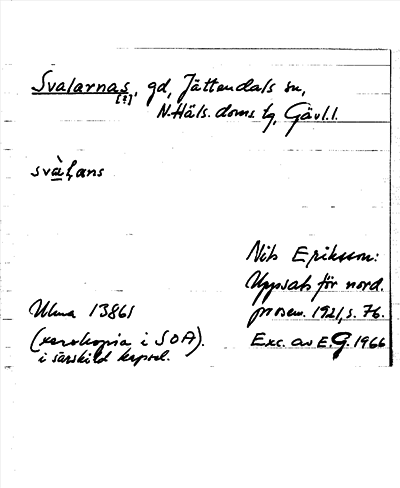 Svalarnas, gd, Jättendals sn,
[?]
N.Häls. doms tg, Gävl.l.
svàḷans
Nils Eriksson:
Uppsats för nord.
prosem. 1921, s. 76.
Exc. av E.G. 1966
Ulma 13861
(xerokopia i SOA).
i särskild kapsel.